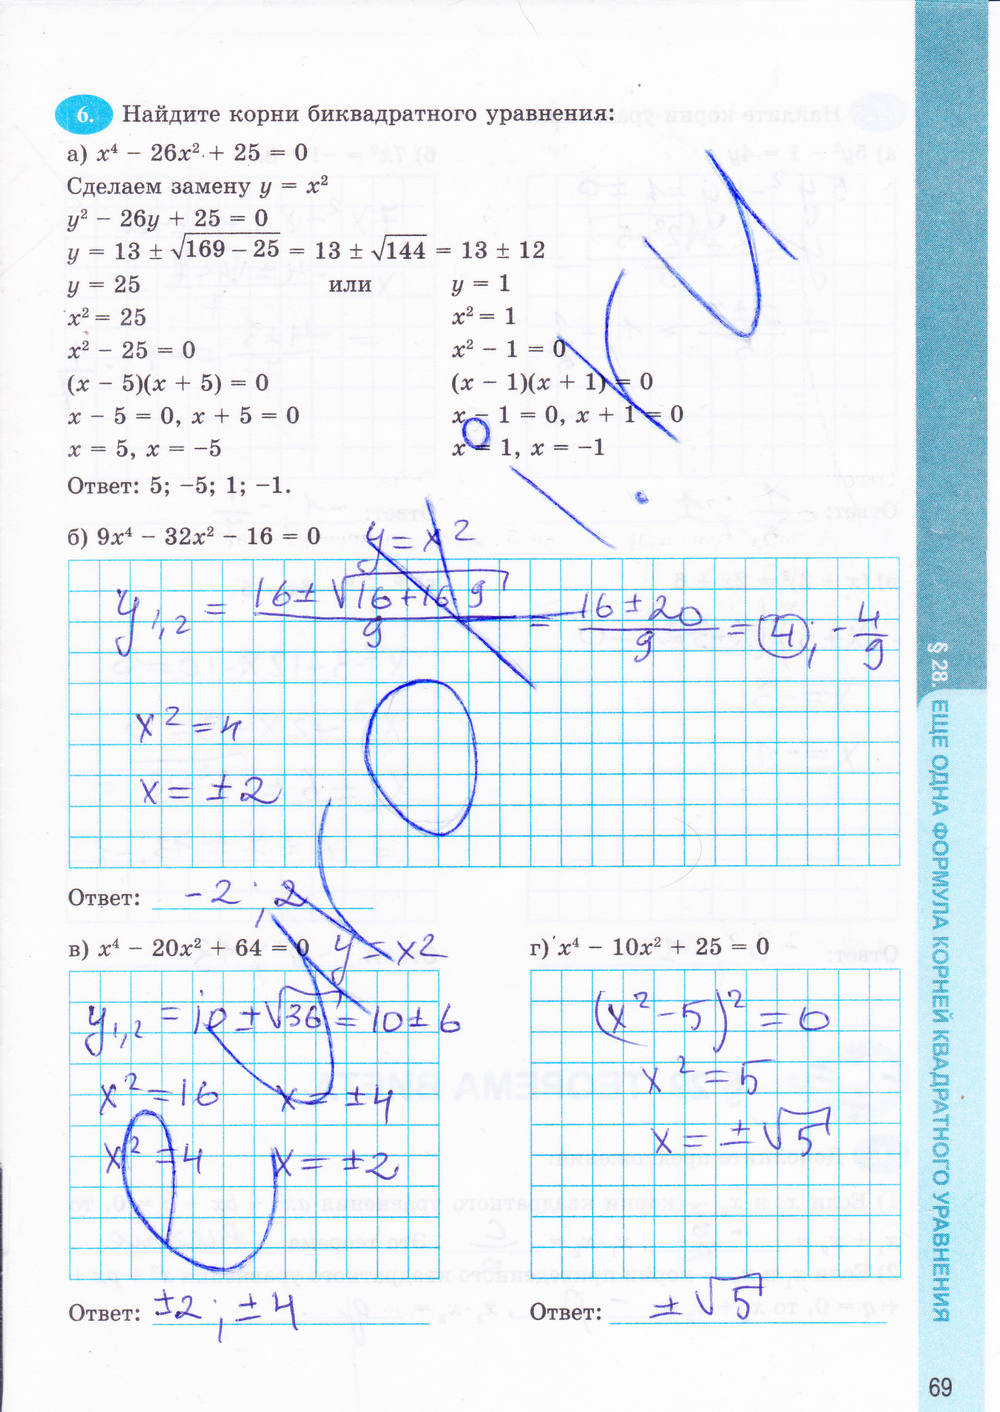 6. Найдите корни биквадратного уравнения:
а) x⁴ − 26x² + 25 = 0
Сделаем замену y = x²
y² − 26y + 25 = 0
y = 13 ± √169 − 25 = 13 ± √144 = 13 ± 12
y = 25 или y = 1
x² = 25 x² = 1
x² − 25 = 0 x² − 1 = 0
(x − 5)(x + 5) = 0 (x − 1)(x + 1) = 0
x − 5 = 0, x + 5 = 0 x − 1 = 0, x + 1 = 0
x = 5, x = −5 x = 1, x = −1
Ответ: 5; −5; 1; −1.
б) 9x⁴ − 32x² − 16 = 0 y = x²
y₁,₂ = (16 ± √16²+16·9)/9 = (16 ± 20)/9 = 4; −4/9
x² = 4
x = ±2
Ответ: −2; 2
в) x⁴ − 20x² + 64 = 0 y = x2
y₁,₂ = 10 ± √36 = 10 ± 6
x² = 16 x = ±4
x² = 4 x = ±2
Ответ: ±2; ±4
г) x⁴ − 10x² + 25 = 0
(x² − 5)² = 0
x² = 5
x = ±√5
Ответ: ±√5
§ 28. ЕЩЕ ОДНА ФОРМУЛА КОРНЕЙ КВАДРАТНОГО УРАВНЕНИЯ
69